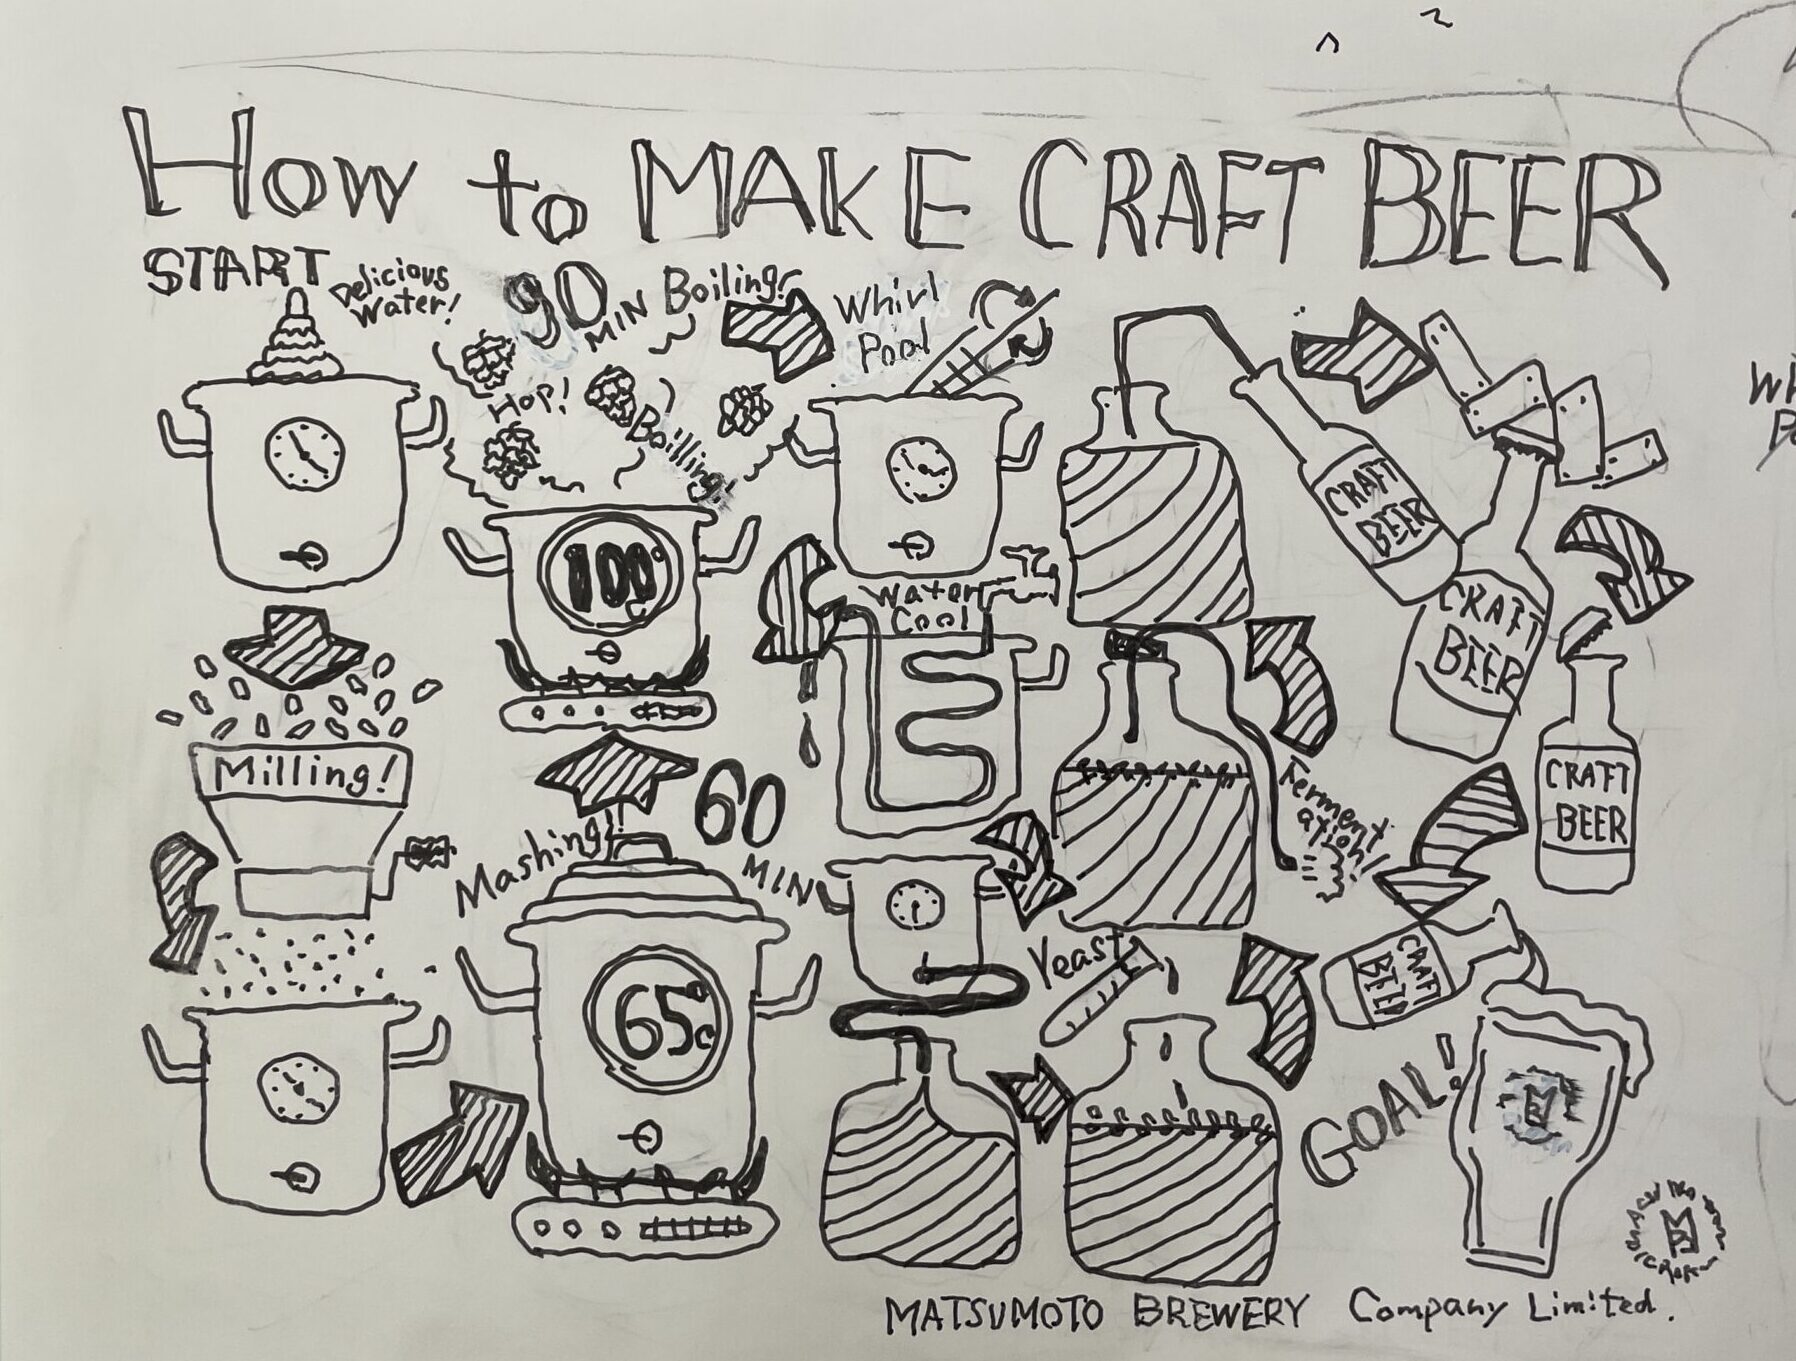 How to MAKE CRAFT BEER
START
Delicious
Water!
Milling!
Mashing!!
60
MIN
65°c
100°c
90
MIN
Boiling!
Hop!
Boilling!
Whirl
Pool
Water
Cool
Yeast
Ferment
ation!
CRAFT
BEER
CRAFT
BEER
CRAFT
BEER
CRAFT
BEER
GOAL!
MATSUMOTO BREWERY Company Limited.